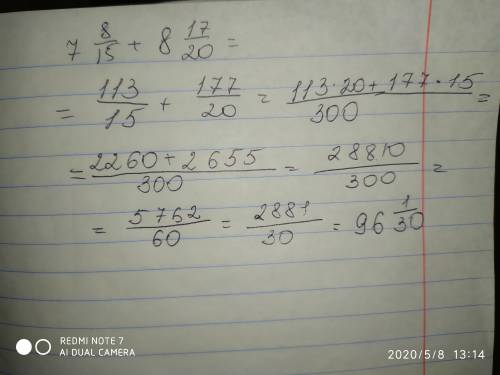 7 8/15 + 8 17/20 =
= 113/15 + 177/20 = 113·20+177·15/300 =
= 2260+2655/300 = 28810/300 =
= 5762/60 = 2881/30 = 96 1/30
REDMI NOTE 7
AI DUAL CAMERA
2020/5/8 13:14